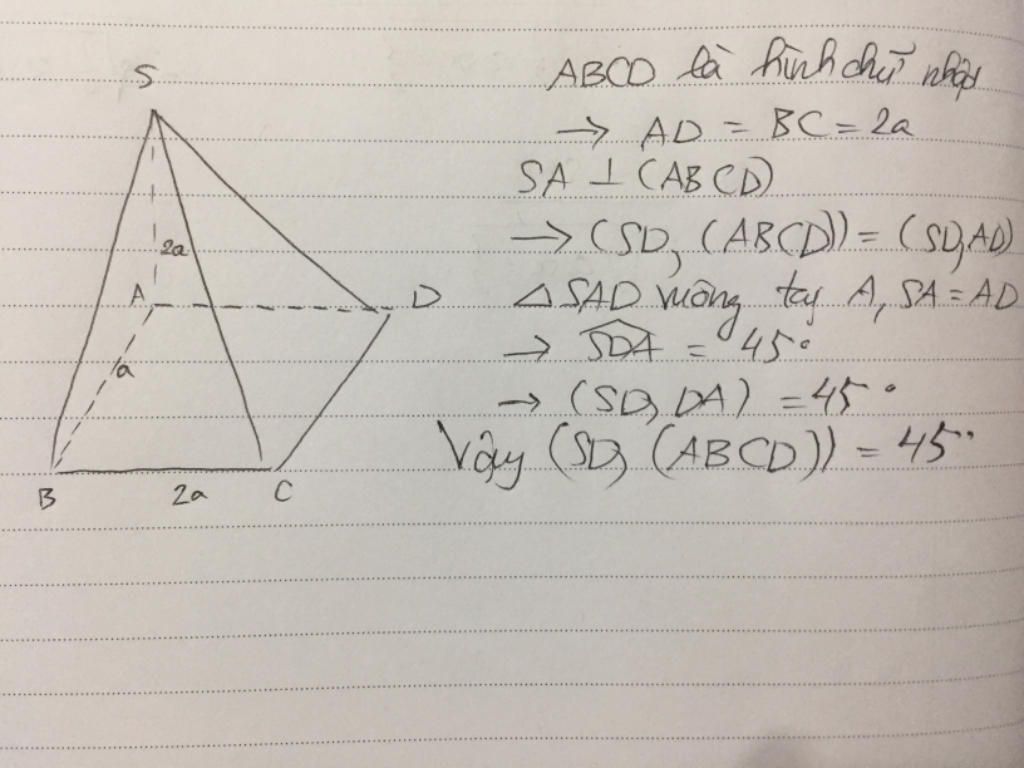 S
ABCD là hình chữ nhật
→ AD = BC = 2a
SA ⊥ (ABCD)
2a
→ (SD, (ABCD)) = (SD, AD)
A
D
△ SAD vuông tại A, SA = AD
→ \widehat{SDA} = 45°
a
→ (SD, DA) = 45°
Vậy (SD, (ABCD)) = 45°
B
2a
C